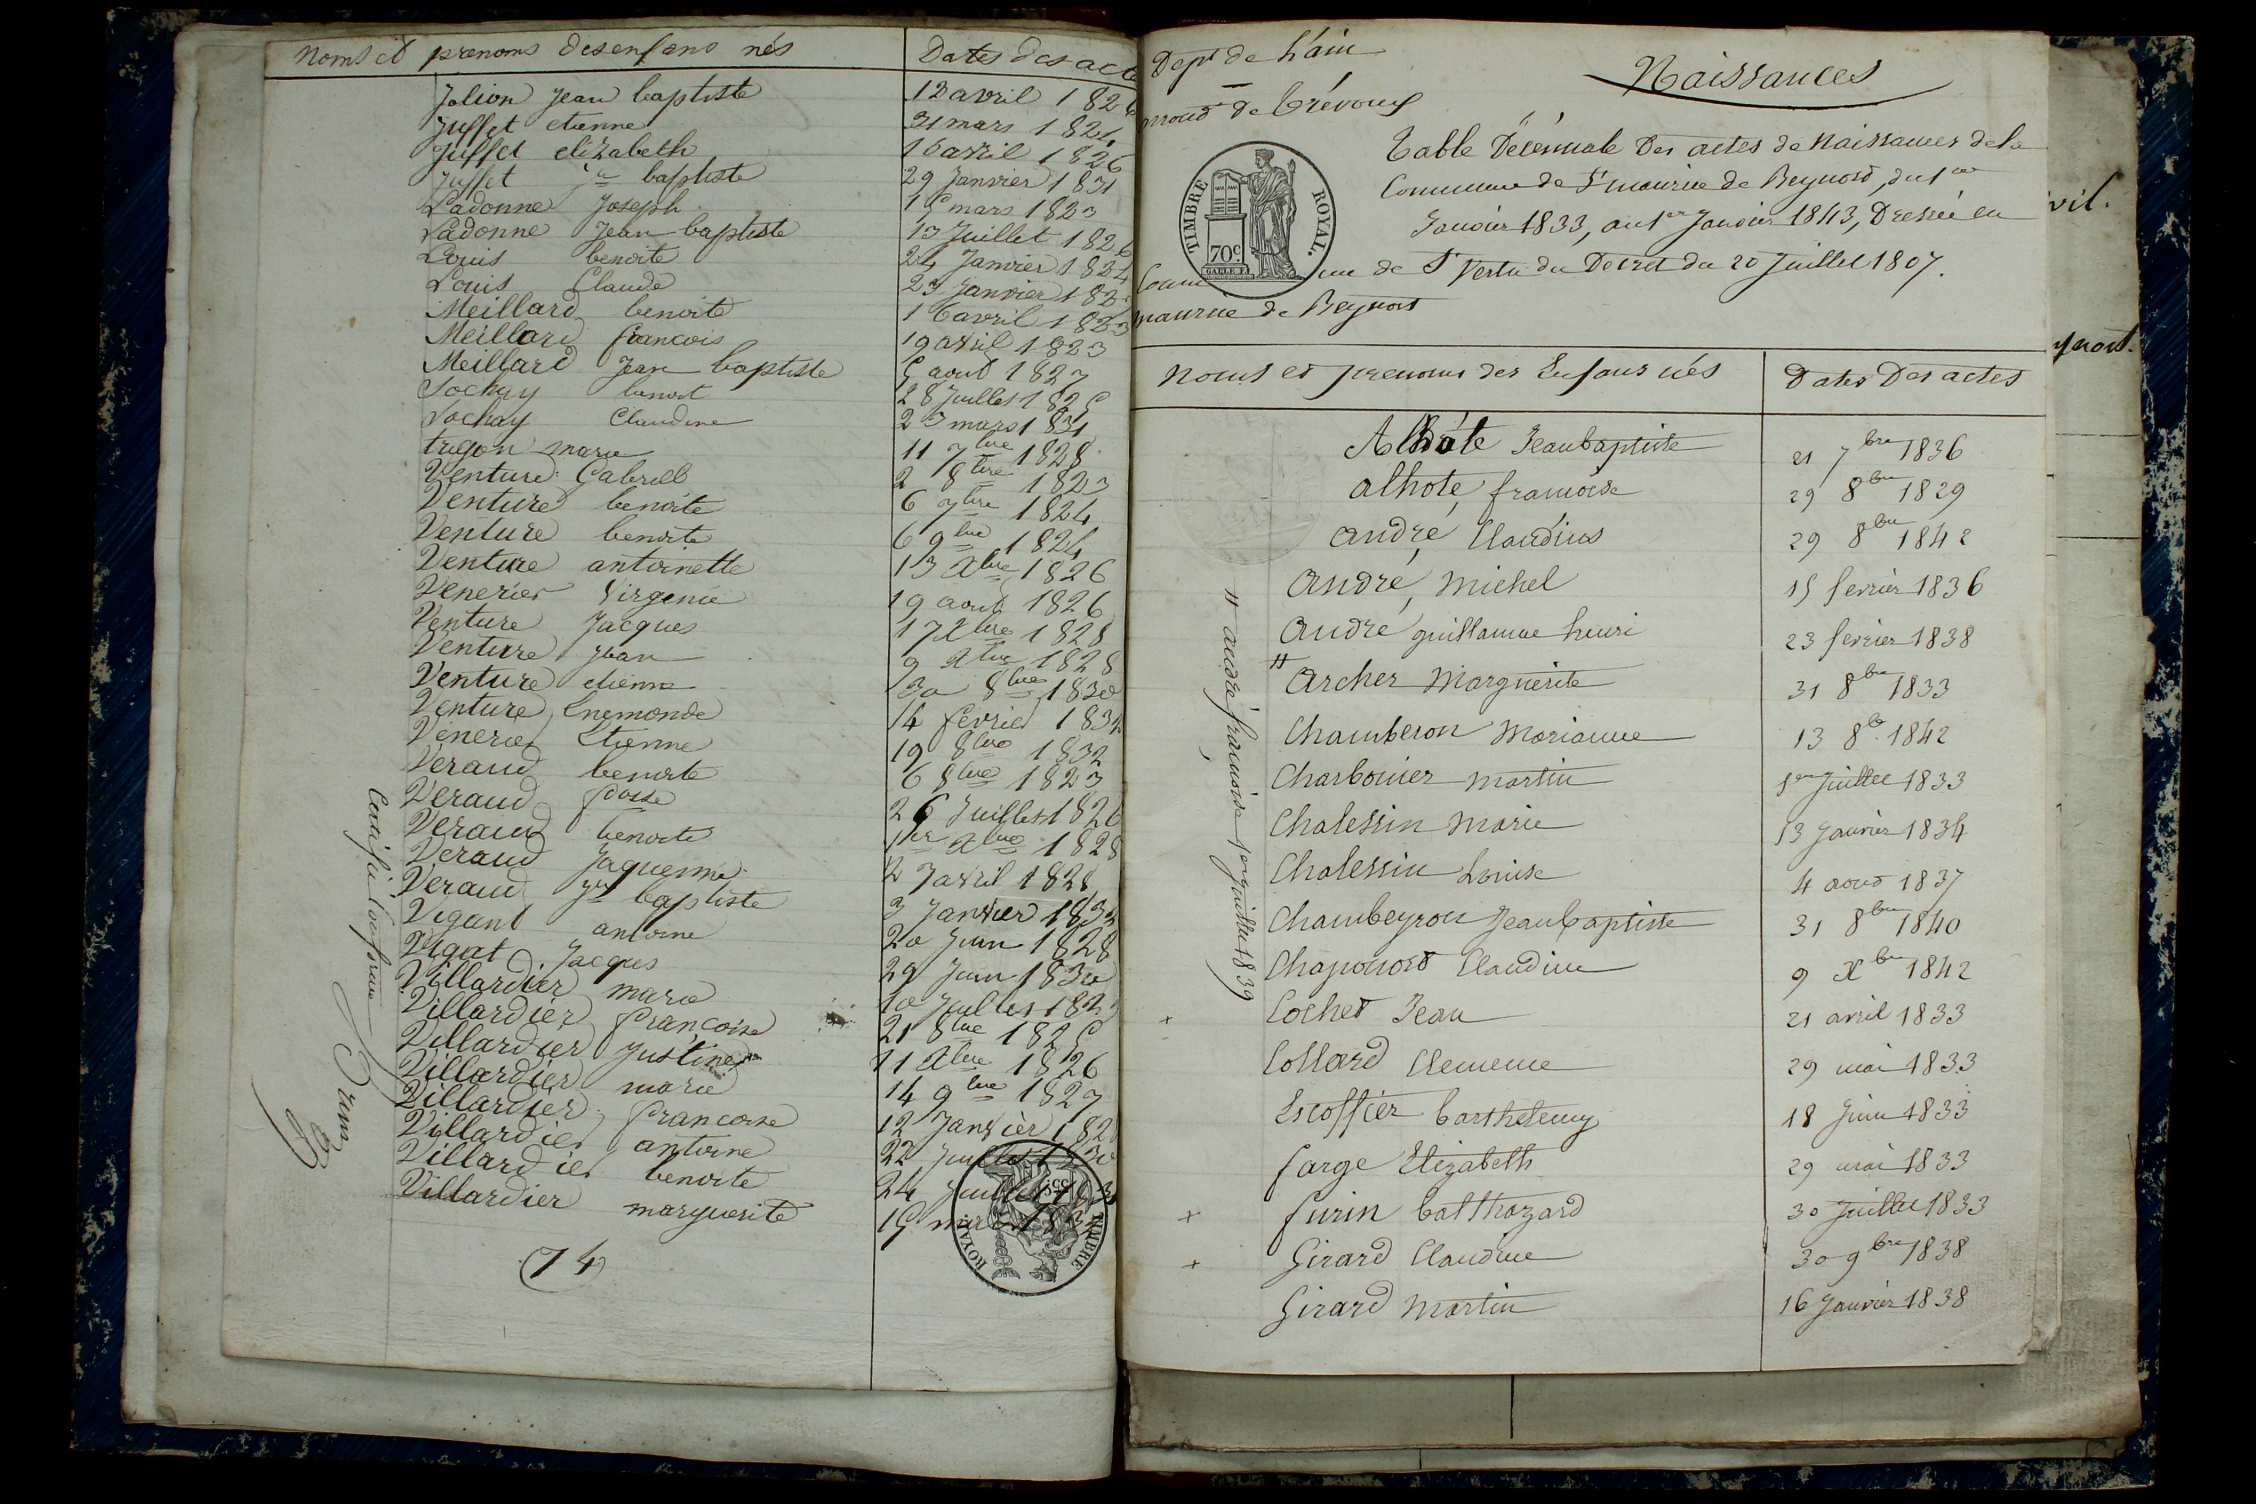 Noms et prenoms des enfans nés Dates des acte
Jolion Jean baptiste 12 avril 182
Juffet etienne 31 mars 1821
Juffet elizabeth 16 avril 1826
Juffet jn baptiste 29 Janvier 1831
Ladonne Joseph 15 mars 1823
Ladonne Jean baptiste 13 Juillet 1826
Louis benoite 24 Janvier 1824
Louis Claude 23 Janvier 182
Meillard benoite 16 avril 1823
Meillard francois 19 avril 1823
Meillard Jean baptiste 5 aout 1827
Sochay benoit 28 Juillet 1825
Sochay Claudine 23 mars 1831
trigon marie 11 7bre 1828
Venture Gabriell 2 8bre 1823
Venture benoite 6 7bre 1824
Venture benoite 6 9bre 1824
Venture antoinette 13 Xbre 1826
Venerier Virgenie 19 aout 1826
Venture Jacques 17 Xbre 1828
Venture Jean 9 Xbre 1828
Venture etienne 30 8bre 1830
Venture Enemonde 14 fevrier 183
Venerier Etienne 19 8bre 1832
Veraud benoite 6 8bre 1823
Veraud 26 Juillet 1826
Veraud benoite 1er Xbre 1828
Veraud Jaquemme 27 avril 1828
Veraud jn baptiste 3 Janvier 183
Vigant antoine 20 Juin 1828
Vigat Jacques 29 Juin 1830
Villardier marie 10 Juillet 182
Villardier françoise 21 8bre 1825
Villardier Justine 11 Xbre 1826
Villardier marie 14 9bre 1827
Villardier francoise 12 Janvier 182
Villardier antoine 22 Juillet 1830
Villardier benoite 24 Juillet 183
Villardier marguerite 15 mars 183
(74)
Certifié
TIMBRE ROYAL
35c
Dept de L'ain
Naissances
de trévoux
Table Décénnale Des actes de Naissances de la
Commune de St maurice de Beynost, du 1er
Janvier 1833, au 1er Janvier 1843, Dressée en
Vertu du Decret du 20 Juillet 1807.
TIMBRE ROYAL.
70c
Comm une de St
maurice de Beynost
Noms et prenoms des Enfans nés Dates Des actes
Alhote Jean baptiste 21 7bre 1836
alhote, francoise 29 8bre 1829
andré, Claudius 29 8bre 1842
andré, Michel 15 fevrier 1836
andre guillaume henri 23 fevrier 1838
" Archer Marguerite 31 8bre 1833
Chamberon Marianne 13 8b. 1842
Charbonier Martin 1er Juillet 1833
Chalessin Marie 13 Janvier 1834
Chalessin Louise 4 aout 1837
Chambeyron Jean baptiste 31 8bre 1840
Chaponost Claudine 9 Xbre 1842
+ Cochet Jean 21 avril 1833
Collard Clemence 29 mai 1833
Escoffier barthelemy 18 Juin 1833
farge Elizabeth 29 mai 1833
+ furin balthazard 30 Juillet 1833
+ Girard Claudine 30 9bre 1838
Girard Martin 16 Janvier 1838
" andré francoise 1er Juillet 1839
vil.
ynost.